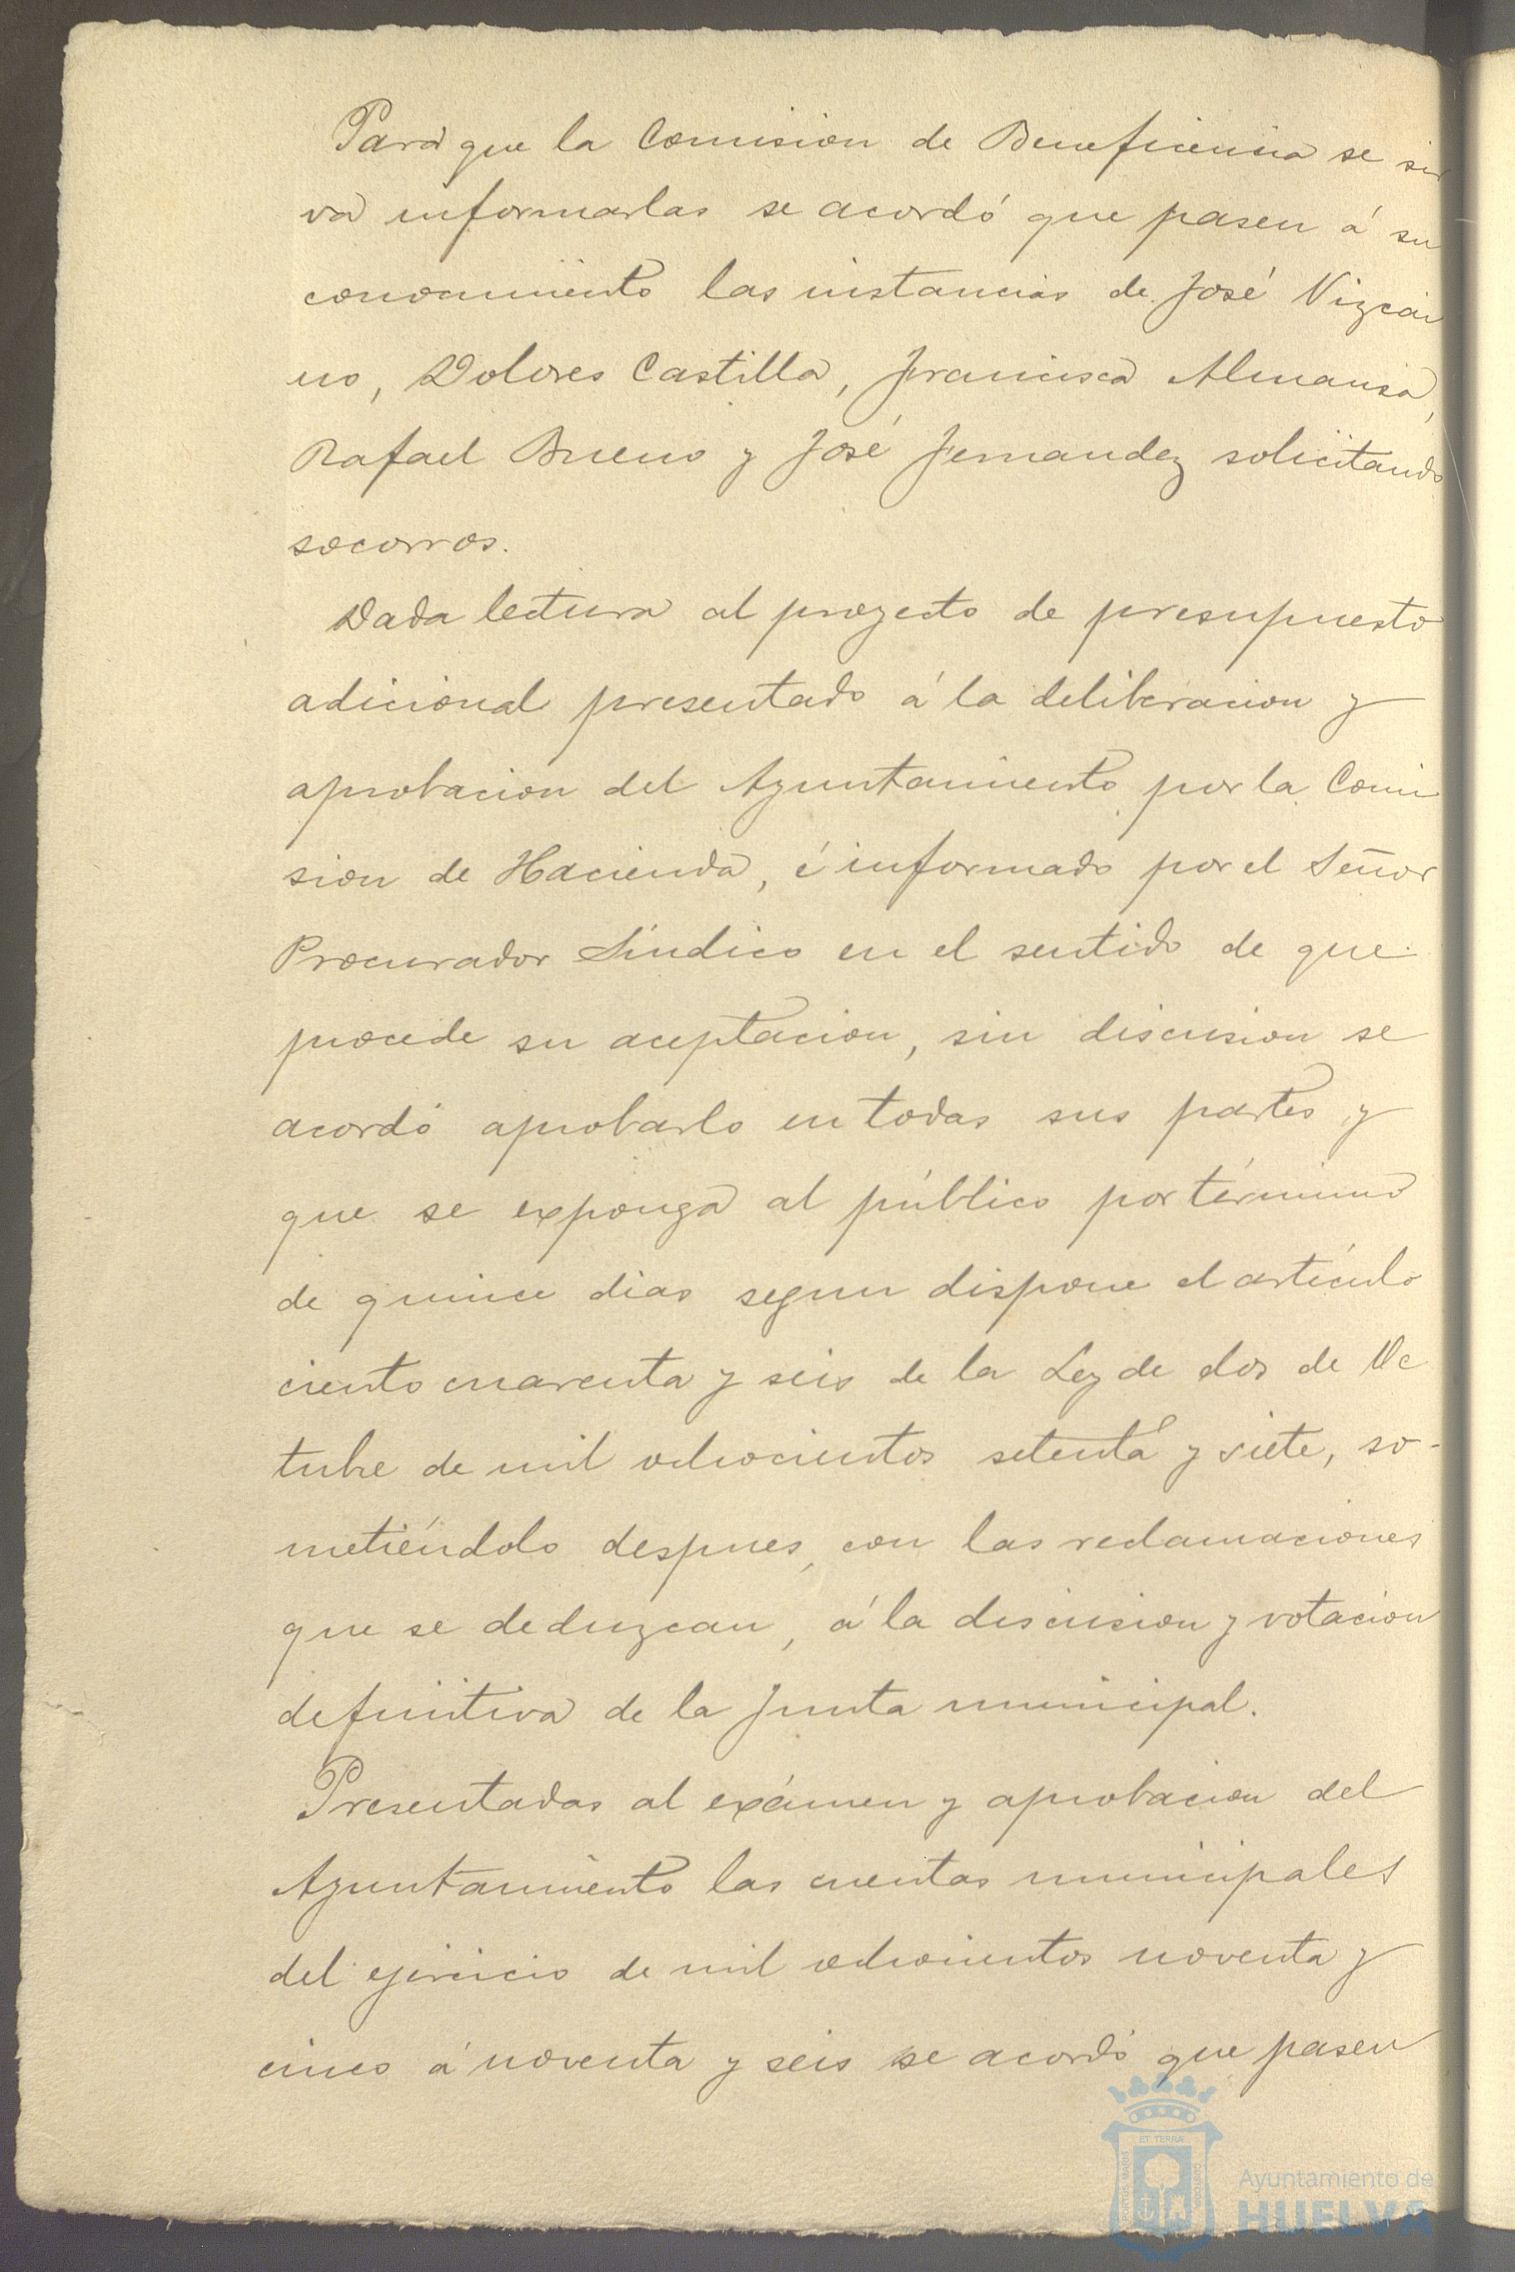 Para que la Comision de Beneficencia se sir
va informarlas se acordó que pasen á su
conocimiento las instancias de José Vizcai
no, Dolores Castilla, Francisca Almansa,
Rafael Bueno y José Fernandez solicitando
socorros.
Dada lectura al proyecto de presupuesto
adicional presentado á la deliberacion y
aprobacion del Ayuntamiento por la Comi
sion de Hacienda, é informado por el Señor
Procurador Síndico en el sentido de que
procede su aceptacion, sin discusion se
acordó aprobarlo en todas sus partes y
que se exponga al público por término
de quince dias segun dispone el artículo
ciento cuarenta y seis de la Ley de dos de Oc
tubre de mil ochocientos setenta y siete, so-
metiéndolo despues, con las reclamaciones
que se deduzcan, á la discusion y votacion
definitiva de la Junta municipal.
Presentadas al exámen y aprobacion del
Ayuntamiento las cuentas municipales
del ejercicio de mil ochocientos noventa y
cinco á noventa y seis se acordó que pasen
ET TERRA
Ayuntamiento de
HUELVA